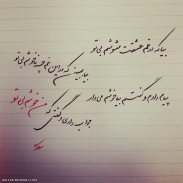 بیا که در غم عشقت مشوشم بی تو
بیا ببین که در این غم چه ناخوشم بی تو
پیام دادم و گفتم بیا خوشم می‌دار
جواب دادی و گفتی که من خوشم بی تو